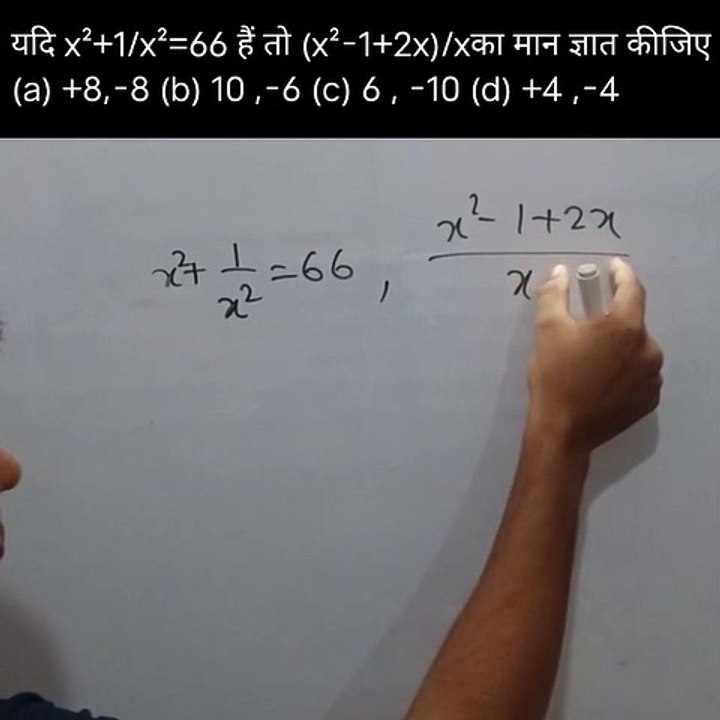 यदि x²+1/x²=66 हैं तो (x²-1+2x)/xका मान ज्ञात कीजिए
(a) +8,-8 (b) 10 ,-6 (c) 6 , -10 (d) +4 ,-4
x²+ 1/x² =66 , x²- 1+2x / x